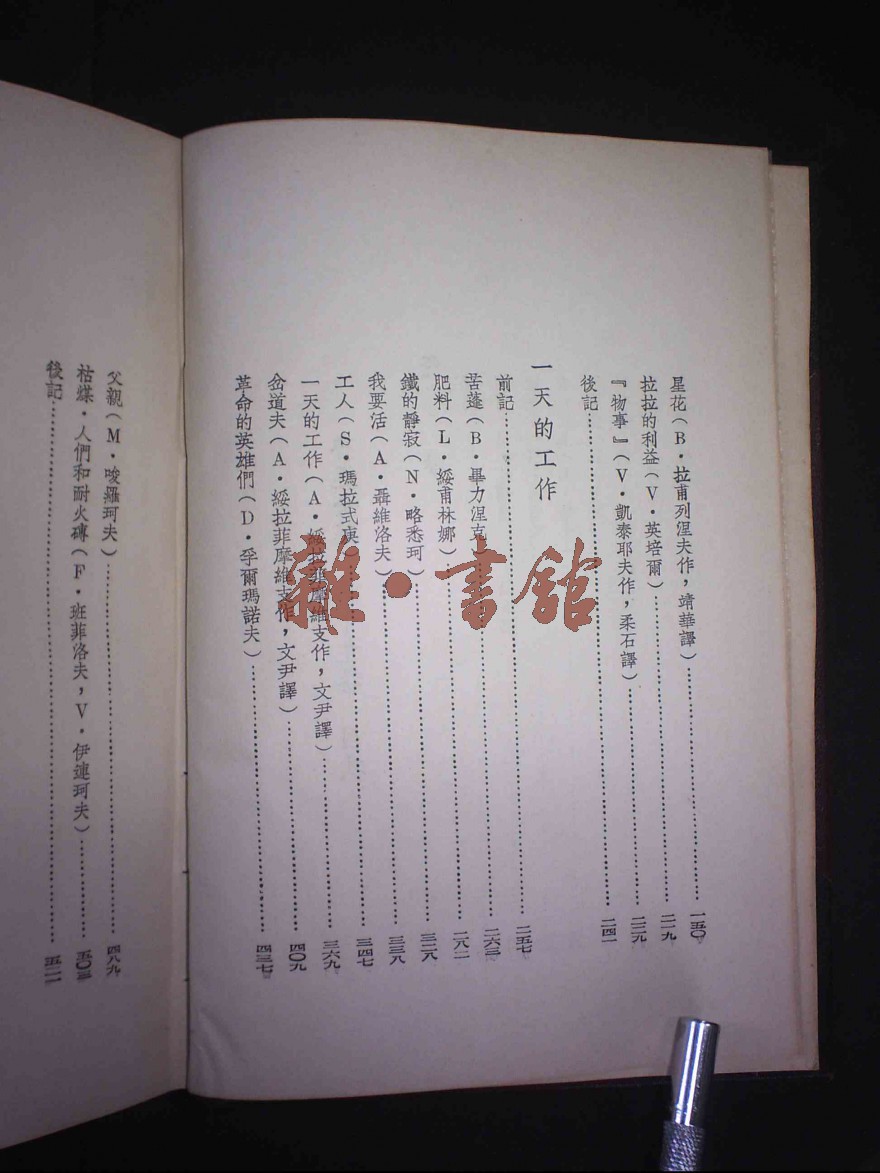 星花（B・拉甫列涅夫作，靖華譯）……一五〇
拉拉的利益（V・英培爾）……二一九
『物事』（V・凱泰耶夫作，柔石譯）……二二九
後記……二四一
一天的工作
前記……二五七
苦蓬（B・畢力涅克）……二六三
肥料（L・綏甫林娜）……二八二
鐵的靜寂（N・略悉珂）……三二八
我要活（A・聶維洛夫）……三三八
工人（S・瑪拉式庚）……三四七
一天的工作（A・綏拉菲摩維支作，文尹譯）……三六九
岔道夫（A・綏拉菲摩維支作，文尹譯）……四〇九
革命的英雄們（D・孚爾瑪諾夫）……四三七
父親（M・唆羅珂夫）……四八九
枯煤・人們和耐火磚（F・班菲洛夫，V・伊連珂夫）……五〇三
後記……五二一
雜・書舘